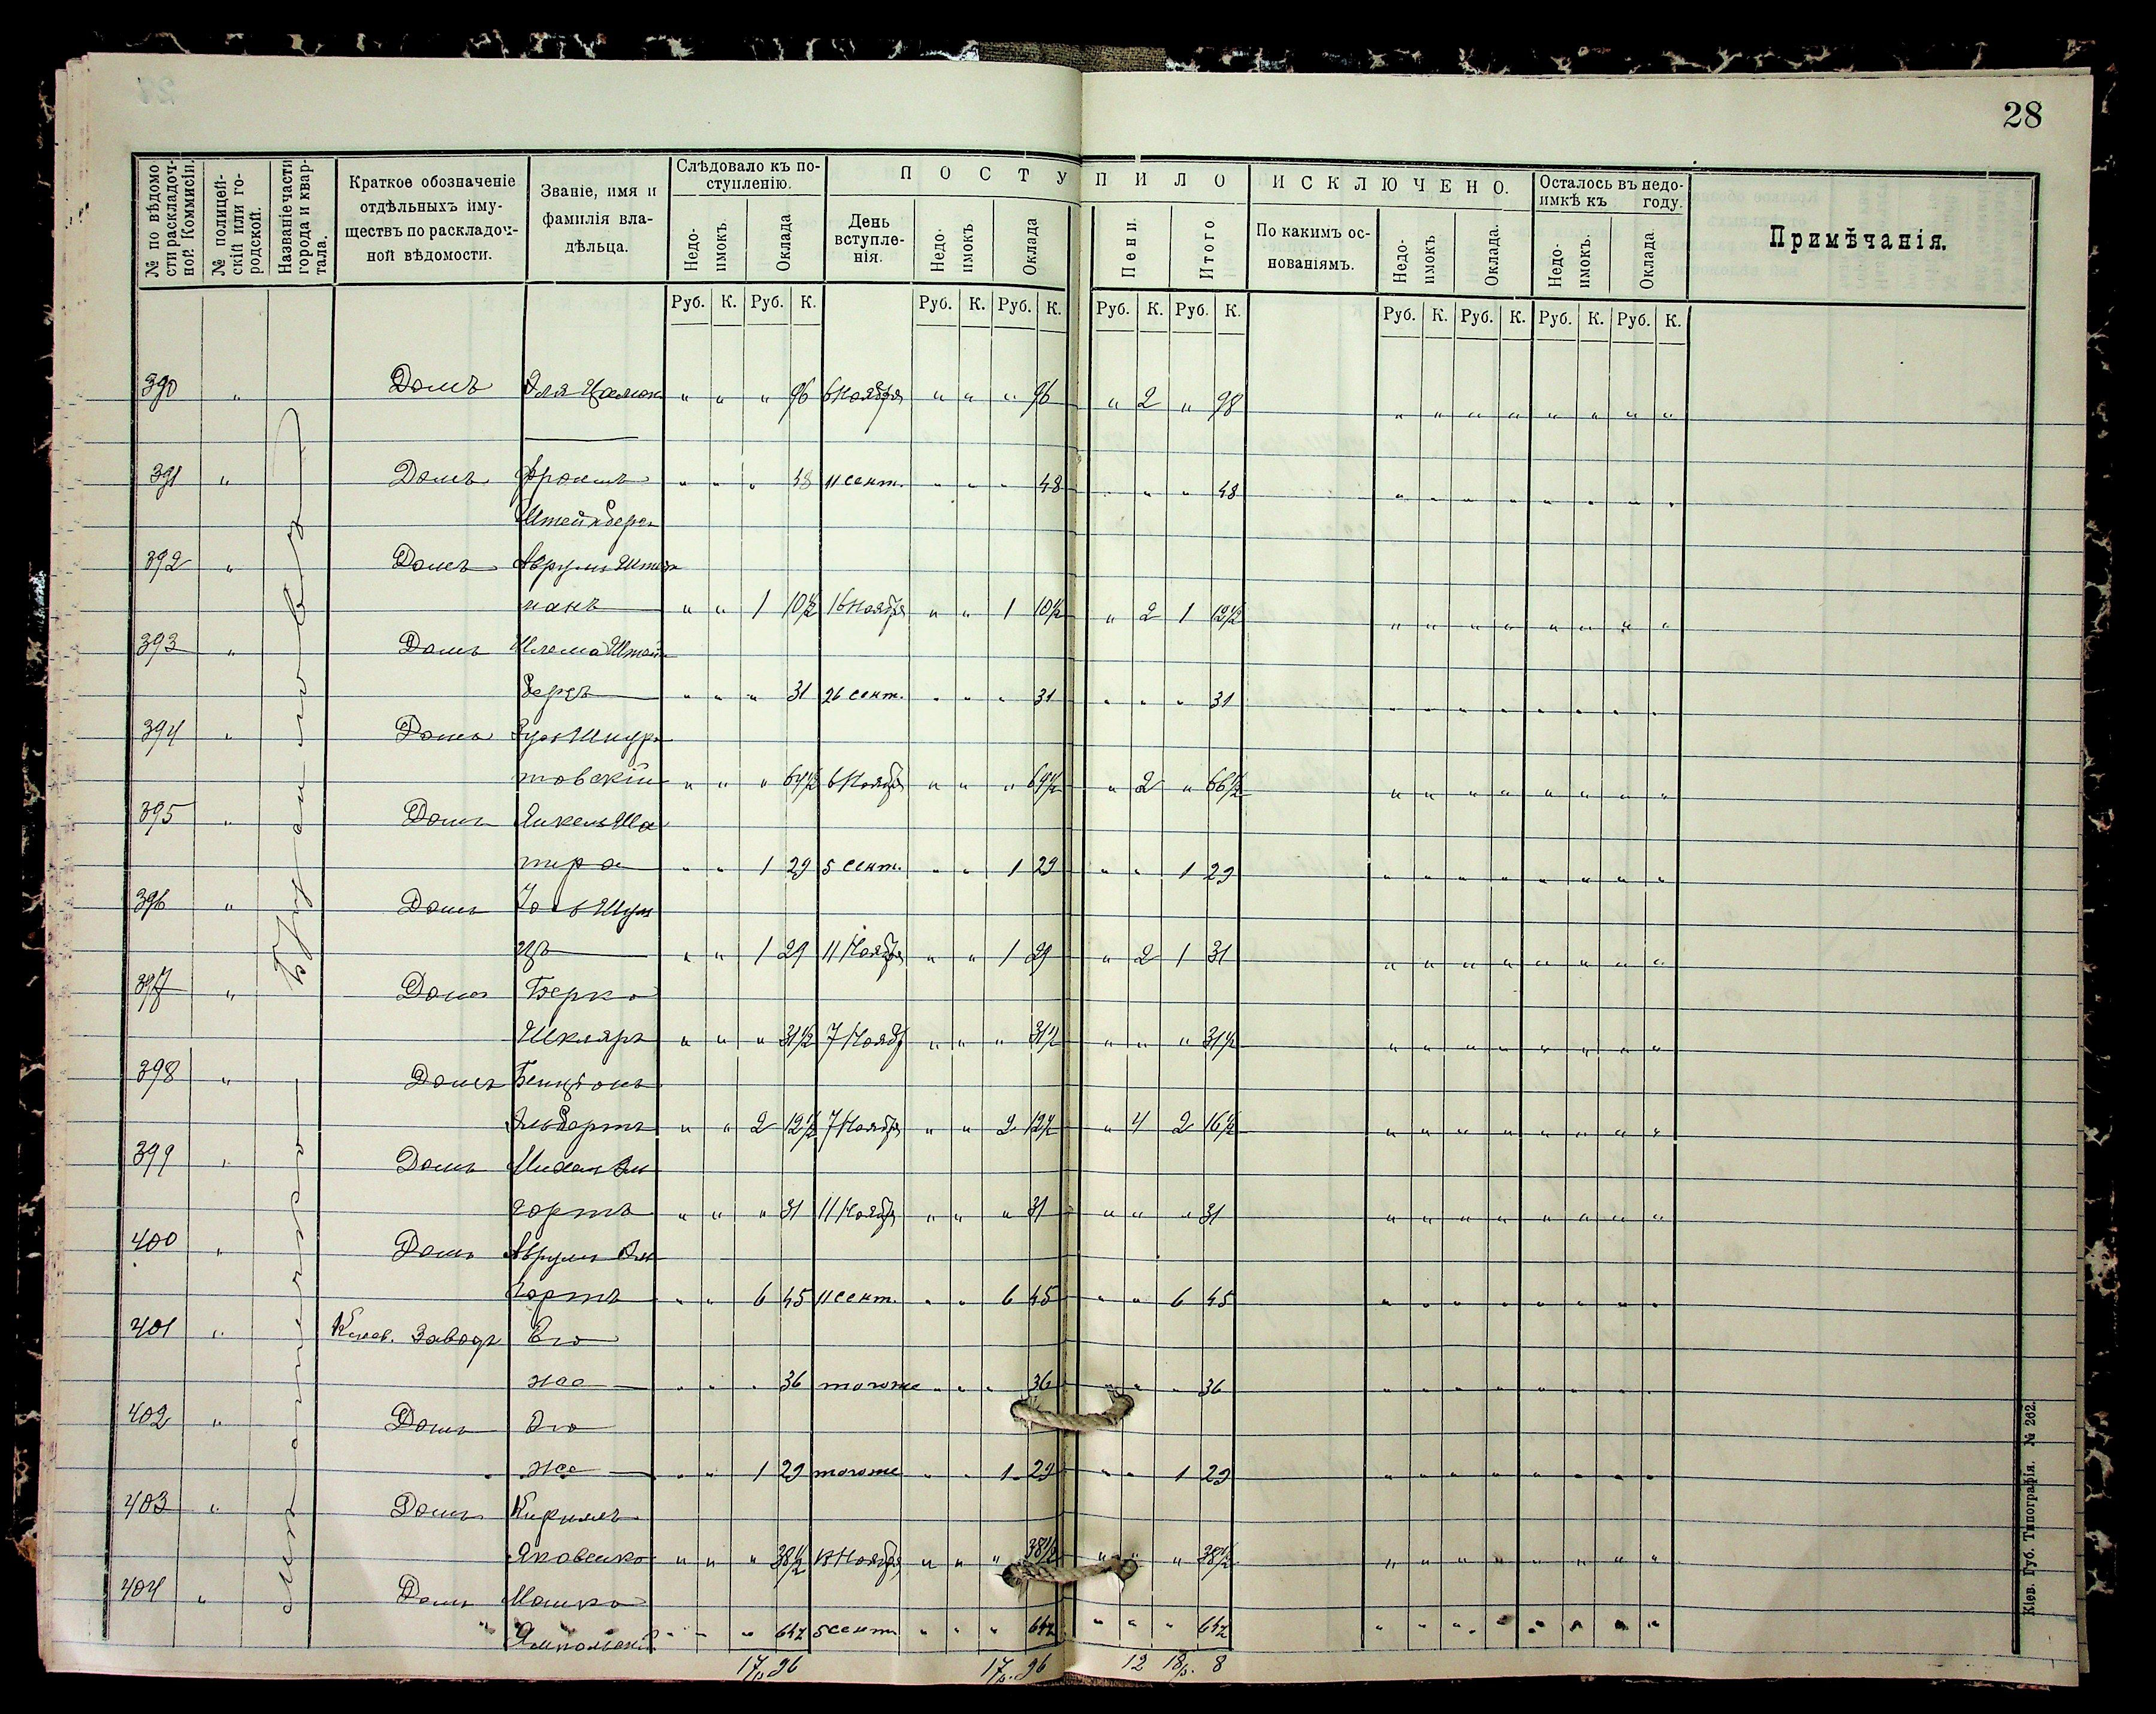 28
№ по вѣдомости раскладочной Коммисіи.
№ полицейскій или городской.
Названіе части города и квартала.
Краткое обозначеніе отдѣльныхъ имуществъ по раскладочной вѣдомости.
Званіе, имя и фамилія владѣльца.
Слѣдовало къ поступленію.
Недоимокъ. Оклада
ПОСТУПИЛО
День вступленія. Недоимокъ Оклада Пени. Итого
ИСКЛЮЧЕНО.
По какимъ основаніямъ. Недоимокъ Оклада.
Осталось въ недоимкѣ къ году.
Недоимокъ. Оклада.
Примѣчанія.
Руб. К. Руб. К. Руб. К. Руб. К. Руб. К. Руб. К. Руб. К. Руб. К. Руб. К. Руб. К.
390 " Домъ Эля " " " 96 6 Ноября " " " 96 " 2 " 98 " " " " " " " "
391 " Домъ Фроимъ " " " 48 11 сент. " " " 48 " " " 48 " " " " " " " "
Штейнберг
392 " Домъ Аврумъ
манъ " " 1 10½ 16 Ноября " " 1 10½ " 2 1 12½ " " " " " " " "
393 " Домъ Шлема Штейн
бергъ " " " 31 26 сент. " " " 31 " " " 31 " " " " " " " "
394 " Домъ
товскій " " " 64½ 6 Ноября " " " 64½ " 2 " 66½ " " " " " " " "
395 " Домъ Янкель Ша
пира " " 1 29 5 сент. " " 1 29 " " 1 29 " " " " " " " "
396 " Домъ Шул
цъ " " 1 29 11 Ноября " " 1 29 " 2 1 31 " " " " " " " "
397 " Домъ Берко
Шкляръ " " " 31½ 7 Ноябр " " " 31½ " " " 31½ " " " " " " " "
398 " Домъ Бенціонъ
Эльбертъ " " 2 12½ 7 Ноября " " 2 12½ " 4 2 16½ " " " " " " " "
399 " Домъ Михель Эл
гортъ " " " 31 11 Ноябр " " " 31 " " " 31 " " " " " " " "
400 " Домъ Аврумъ Эль
гортъ " " 6 45 11 сент. " " 6 45 " " 6 45 " " " " " " " "
401 " Заводъ Его
же " " " 36 тогоже " " " 36 " " " 36 " " " " " " " "
402 " Домъ Его
же " " 1 29 тогоже " " 1 29 " " 1 29 " " " " " " " "
403 " Домъ Кирилъ
Яковенко " " " 38½ 13 Ноября " " " 38½ " " " 38½ " " " " " " " "
404 " Домъ Мошко
Ямпольскій " " " 64½ 5 сент " " " 64½ " " " 64½ " " " " " " " "
17р 96 17р. 96 12 18р. 8
Кіев. Губ. Типографія. № 262.